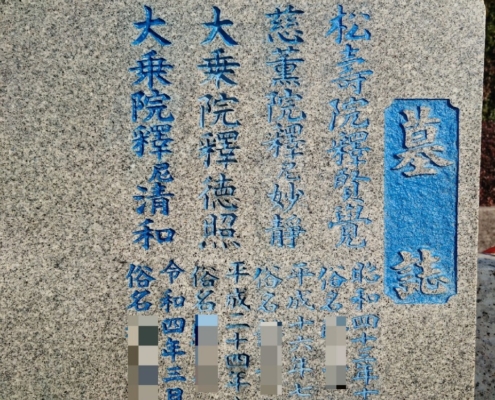 墓誌
松壽院釋賢覺
昭和四十三年十
俗名
慈薫院釋尼妙静
平成十六年七
俗名
大乗院釋徳照
平成二十四年
俗名
大乗院釋尼清和
令和四年三月
俗名